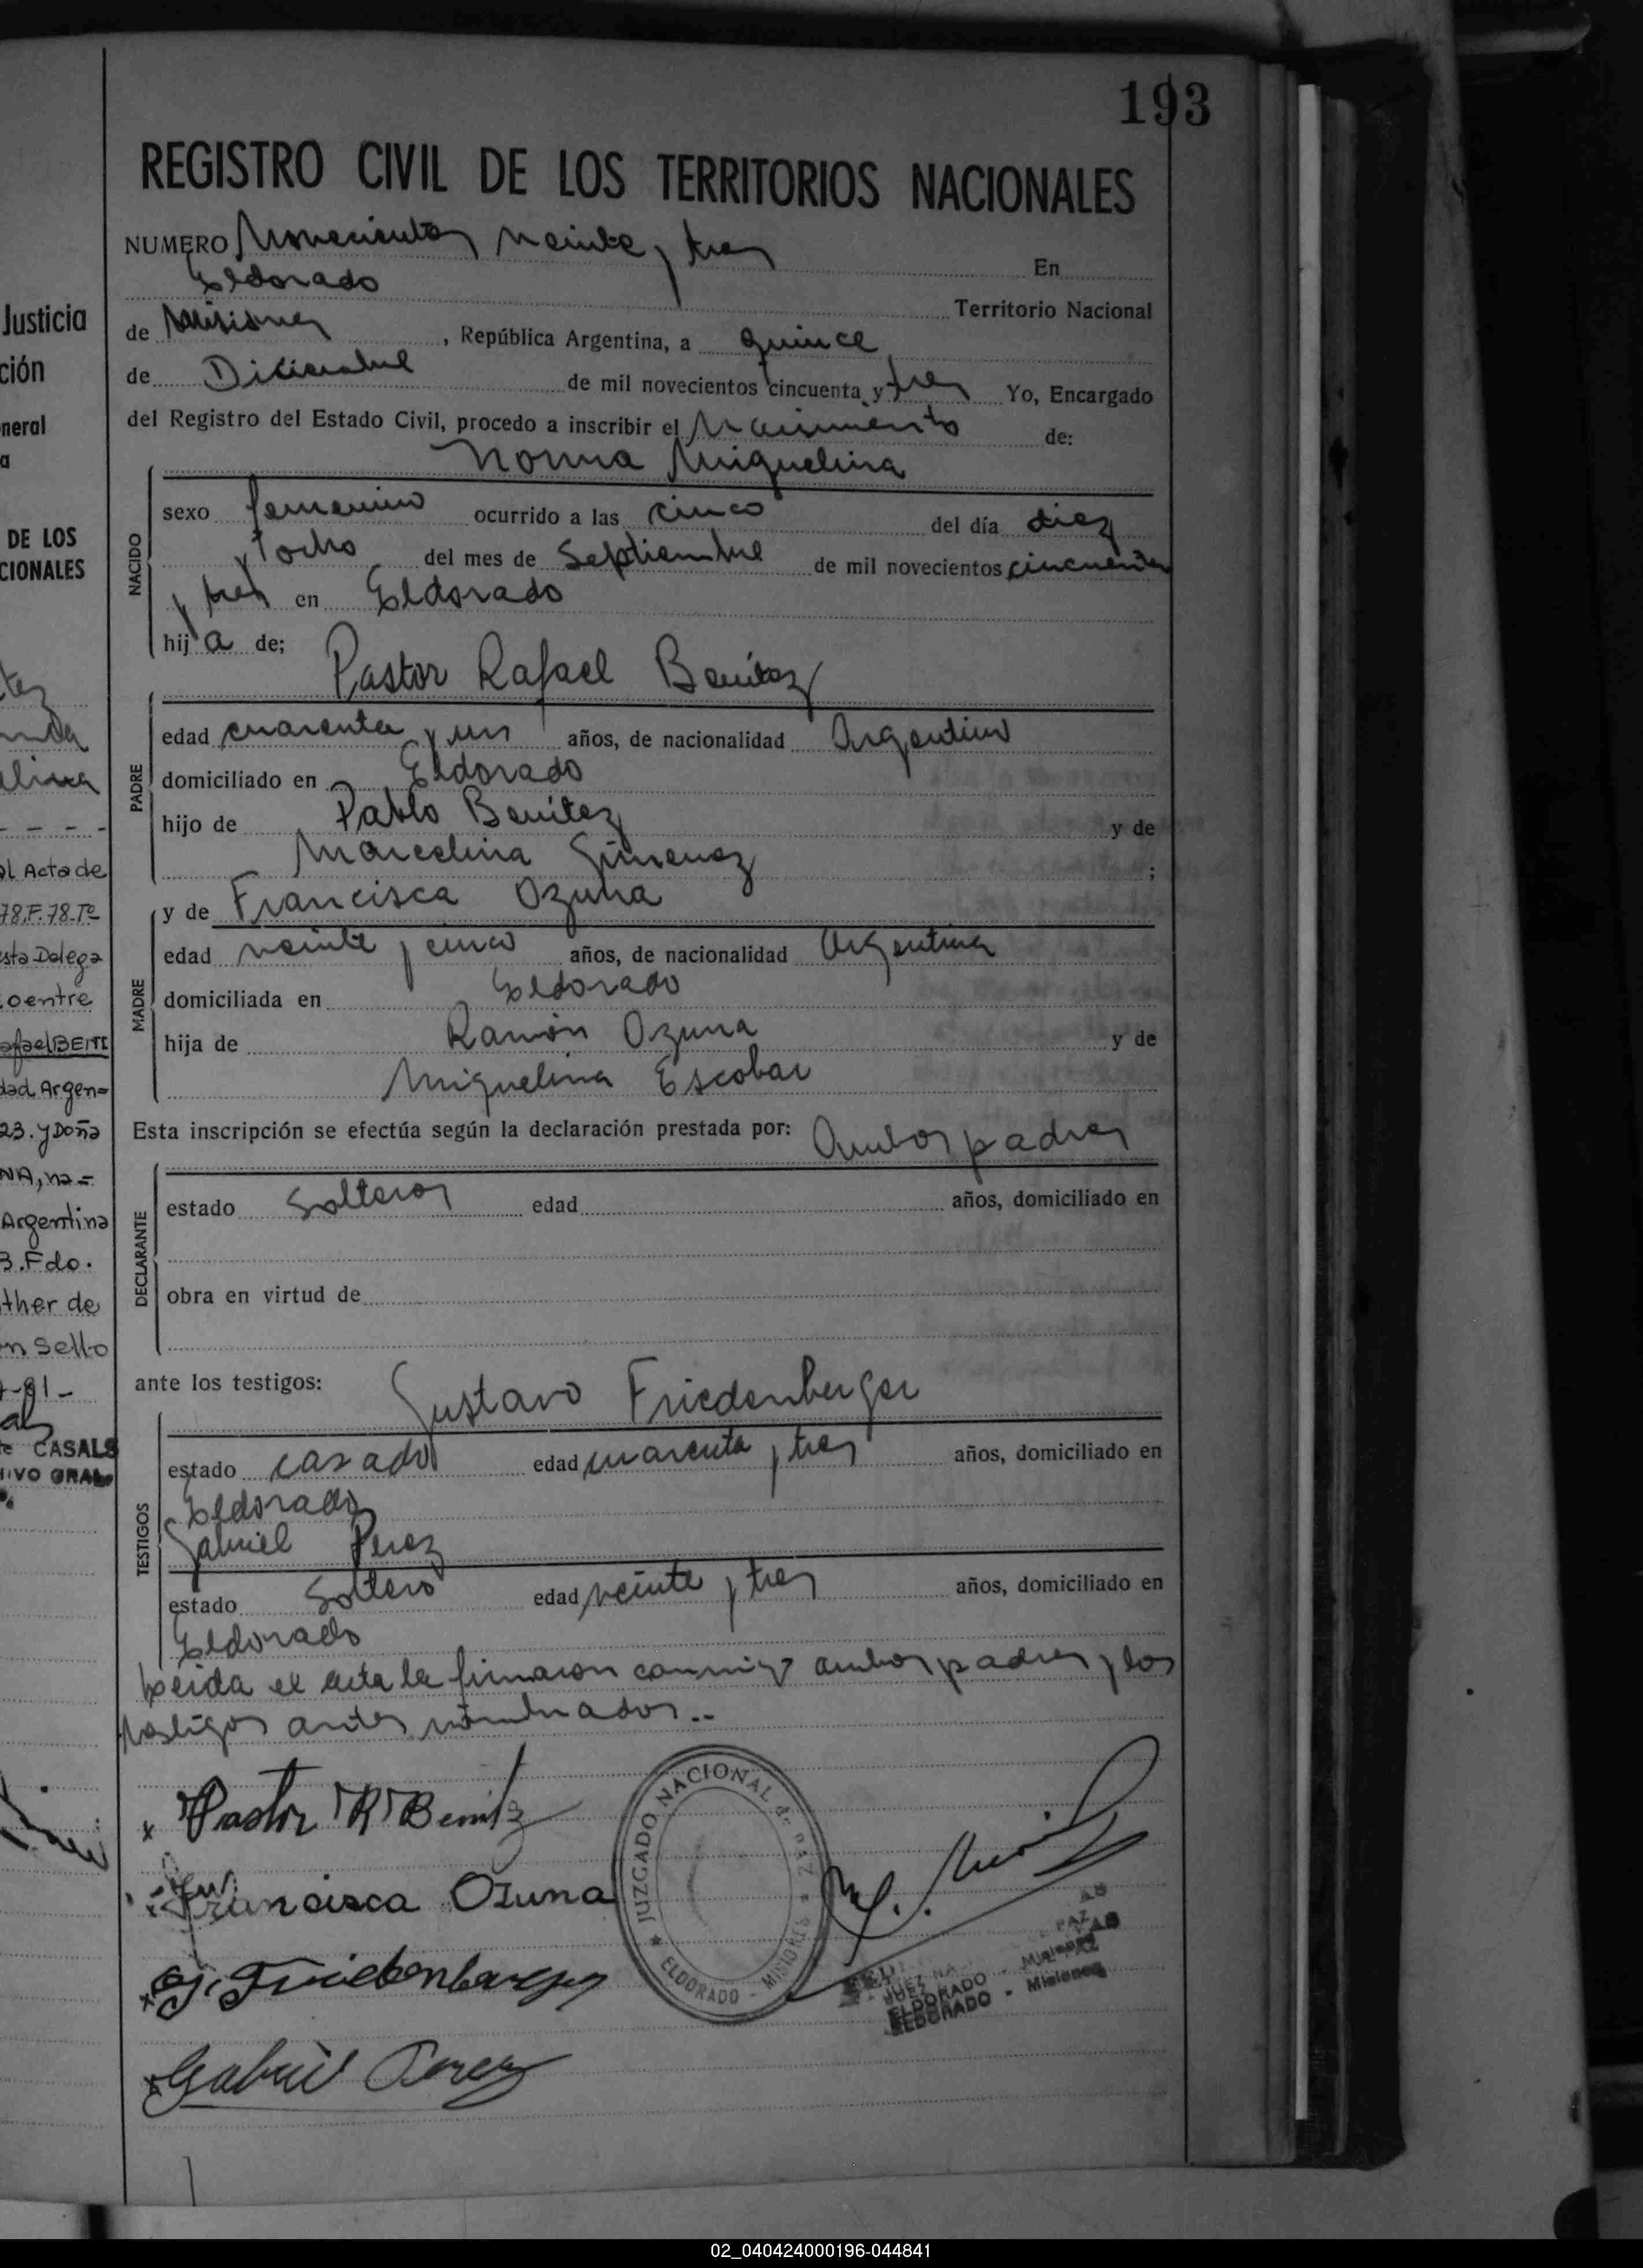 193
REGISTRO CIVIL DE LOS TERRITORIOS NACIONALES
NUMERO Novecientos veinte y tres En
Eldorado Territorio Nacional
de Misiones, República Argentina, a quince
de Diciembre de mil novecientos cincuenta y tres Yo, Encargado
del Registro del Estado Civil, procedo a inscribir el Nacimiento de:
Norma Miguelina
NACIDO
sexo femenino ocurrido a las cinco del día diez
y ocho del mes de Septiembre de mil novecientos cincuenta
y tres en Eldorado
hija de;
Pastor Rafael Benítez
PADRE
edad cuarenta y un años, de nacionalidad Argentino
domiciliado en Eldorado
hijo de Pablo Benítez y de
Marcelina Gimenez ;
y de Francisca Ozuna
MADRE
edad veinte y cinco años, de nacionalidad Argentina
domiciliada en Eldorado
hija de Ramón Ozuna y de
Miguelina Escobar
Esta inscripción se efectúa según la declaración prestada por: Ambos padres
DECLARANTE
estado Solteros edad años, domiciliado en
obra en virtud de
ante los testigos: Gustavo Friedenberger
TESTIGOS
estado casado edad cuarenta y tres años, domiciliado en
Eldorado
Gabriel Perez
estado Soltero edad veinte y tres años, domiciliado en
Eldorado
Leida el acta la firmaron conmigo ambos padres y los
testigos antes nombrados..
x Pastor R Benitz
Francisca Ozuna
x G. Friedenberger
x Gabriel Perez
JUZGADO NACIONAL de PAZ
ELDORADO - MISIONES
JUEZ NA
PAZ
ELDORADO - Misiones
ELDORADO - Misiones
Justicia
ción
neral
a
DE LOS
CIONALES
tez
elina
al Acta de
78.F.78.Tº
esta Delega
coentre
afael BENI
dad Argen=
23. y Doña
NA, na=
Argentina
3. Fdo.
ther de
n Sello
CASALS
IVO GRAL
02_040424000196-044841